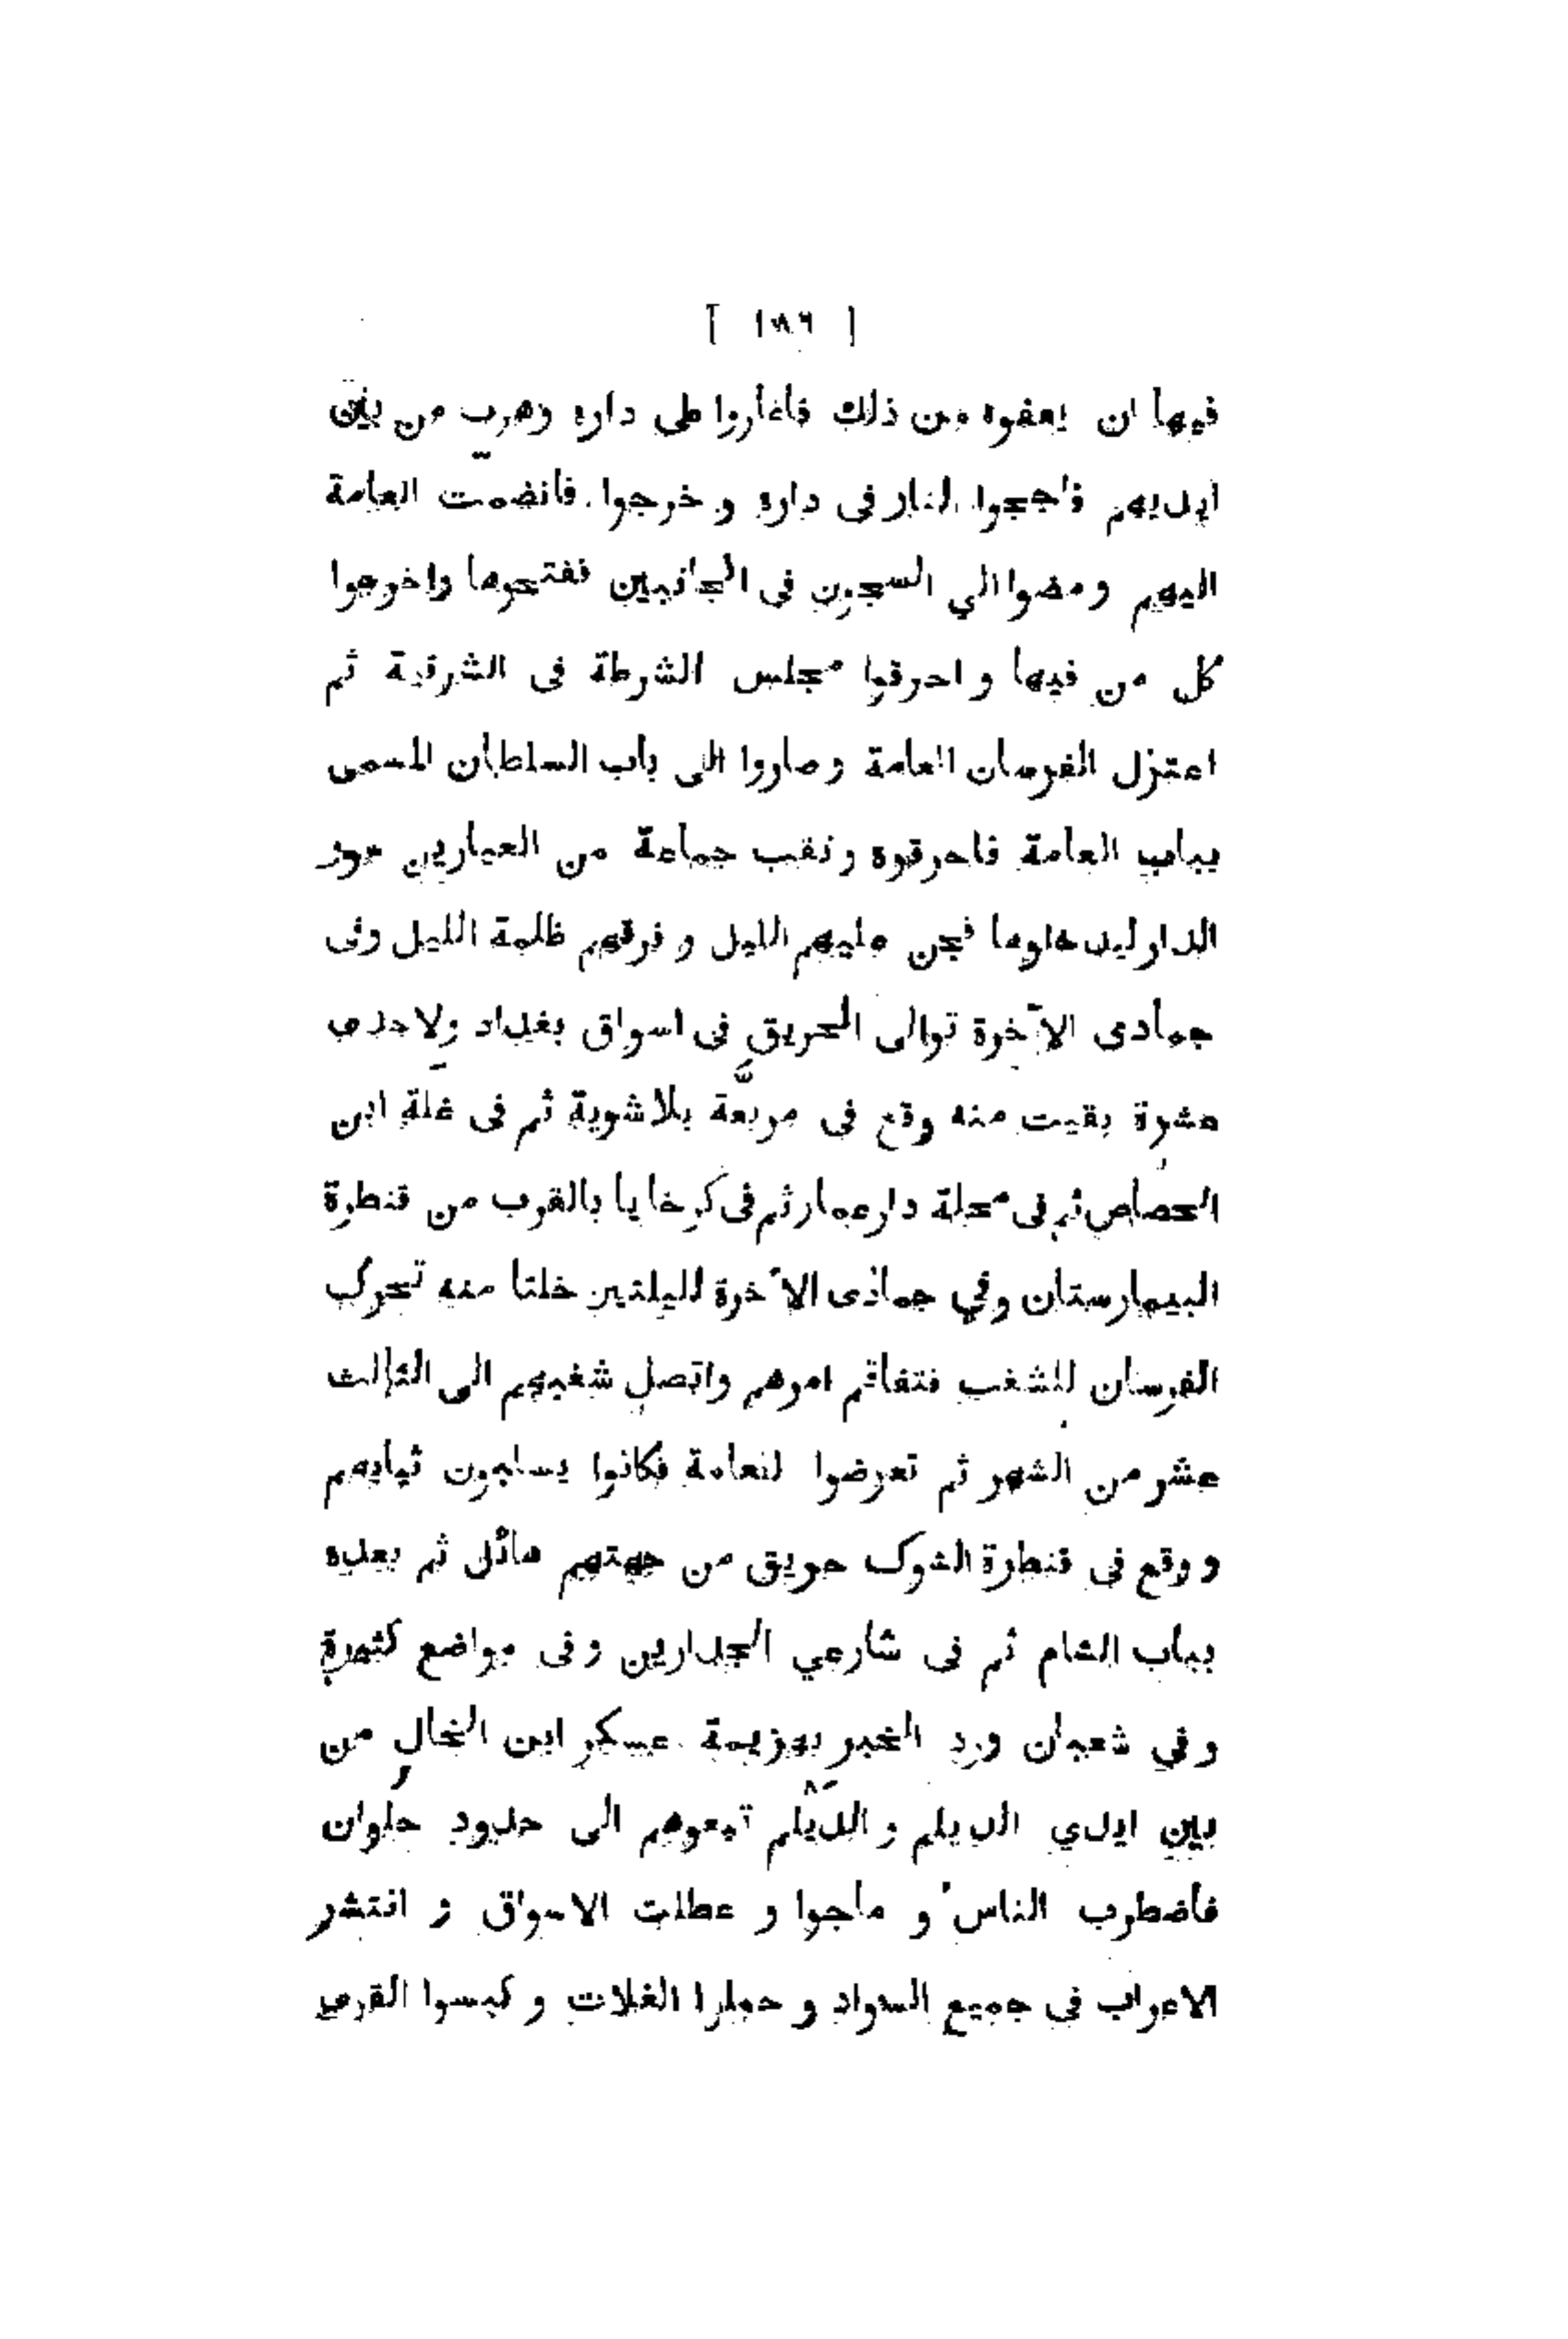 [ ١٨٦ ]
فيها ان يعفوه من ذلك فاغاروا على داره وهرب من بين
ايديهم فاججوا النار فى داره و خرجوا فانضمت العامة
اليهم ومضوا الي السجون فى الجانبين ففتحوها واخرجوا
كل من فيها و احرقوا مجلس الشرطة فى الشرقية ثم
اعتزل الفرسان العامة وصاروا الى باب السلطان المسمى
بباب العامة فاحرقوه ونقب جماعة من العيارين سور
الدار ليدخلوها فجن عليهم الليل و فرقهم ظلمة الليل وفى
جمادى الآخرة توالى الحريق فى اسواق بغداد ولاحدى
عشرة بقيت منه وقع فى مربعة بلاشوية ثم فى غلة ابن
الحصاص ثم فى محلة دار عمار ثم فى كرخايا بالقرب من قنطرة
البيمارستان وفي جمادى الآخرة لليلتين خلتا منه تحرك
الفرسان للشغب فتفاقم امرهم واتصل شغبهم الى الثالث
عشر من الشهر ثم تعرضوا للعامة فكانوا يسلبون ثيابهم
و وقع فى قنطرة الشوك حريق من جهتهم هائل ثم بعده
بباب الشام ثم فى شارعي الجدارين وفى مواضع كثيرة
وفي شعبان ورد الخبر بهزيمة عسكر ابن الخال من
بين ايدي الديلم و الديلم تبعوهم الى حدود حلوان
فأضطرب الناس و ماجوا و عطلت الاسواق و انتشر
الاعراب فى جميع السواد و حملوا الغلات و كبسوا القرى